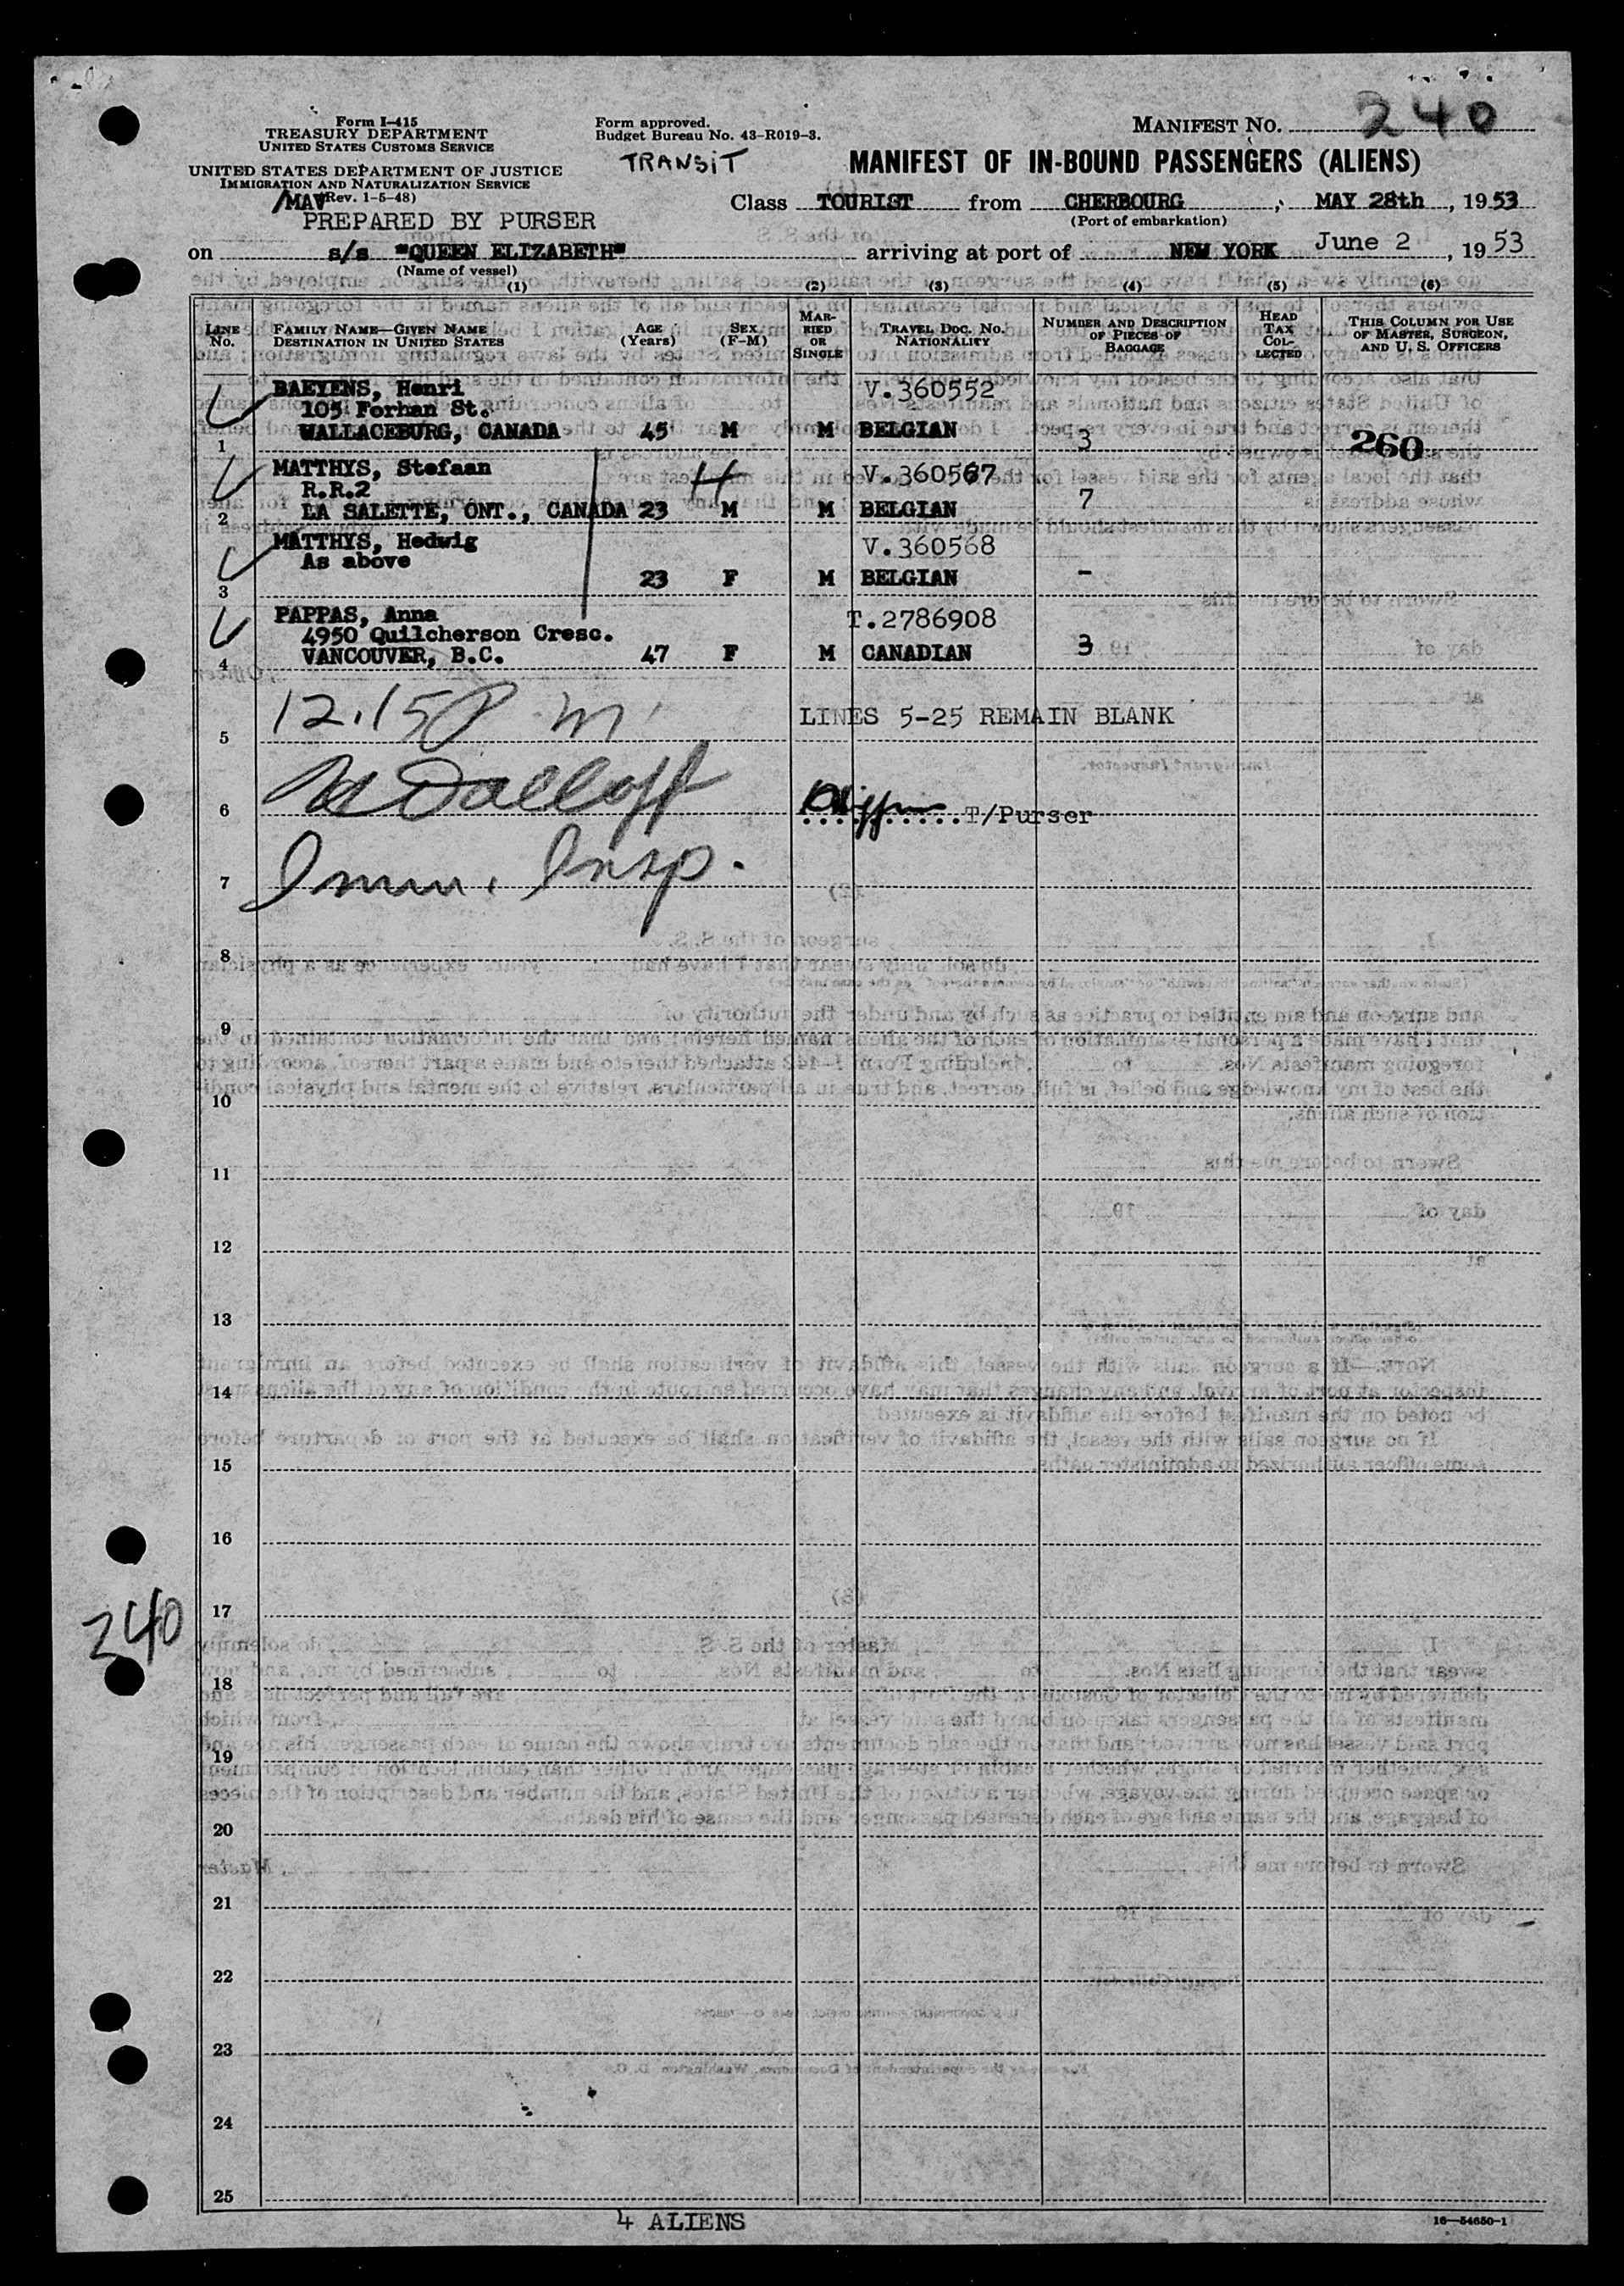 Form I-415
TREASURY DEPARTMENT
UNITED STATES CUSTOMS SERVICE
UNITED STATES DEPARTMENT OF JUSTICE
IMMIGRATION AND NATURALIZATION SERVICE
(Rev. 1-5-48)
/MAV
PREPARED BY PURSER
Form approved.
Budget Bureau No. 43-R019-3.
TRANSIT
MANIFEST NO. 240
MANIFEST OF IN-BOUND PASSENGERS (ALIENS)
Class TOURIST from CHERBOURG, MAY 28th, 1953
(Port of embarkation)
on s/s "QUEEN ELIZABETH" arriving at port of NEW YORK June 2, 1953
(Name of vessel)
(1) (2) (3) (4) (5) (6)
LINE No. FAMILY NAME—GIVEN NAME DESTINATION IN UNITED STATES AGE (Years) SEX (F-M) MARRIED OR SINGLE TRAVEL DOC. NO. NATIONALITY NUMBER AND DESCRIPTION OF PIECES OF BAGGAGE HEAD TAX COLLECTED THIS COLUMN FOR USE OF MASTER, SURGEON, AND U. S. OFFICERS
BAEYENS, Henri V.360552
105 Forhan St.
1 WALLACEBURG, CANADA 45 M M BELGIAN 3 260
MATTHYS, Stefaan H V.360567
R.R.2
2 LA SALETTE, ONT., CANADA 23 M M BELGIAN 7
MATTHYS, Hedwig V.360568
As above
3 23 F M BELGIAN -
PAPPAS, Anna T.2786908
4950 Quilcherson Cresc.
4 VANCOUVER, B.C. 47 F M CANADIAN 3
12.15 P.m.
5 LINES 5-25 REMAIN BLANK
6 T/Purser
7 Imm. Insp.
8
9
10
11
12
13
14
15
16
17
240
18
19
20
21
22
23
24
25
4 ALIENS
16—54650-1